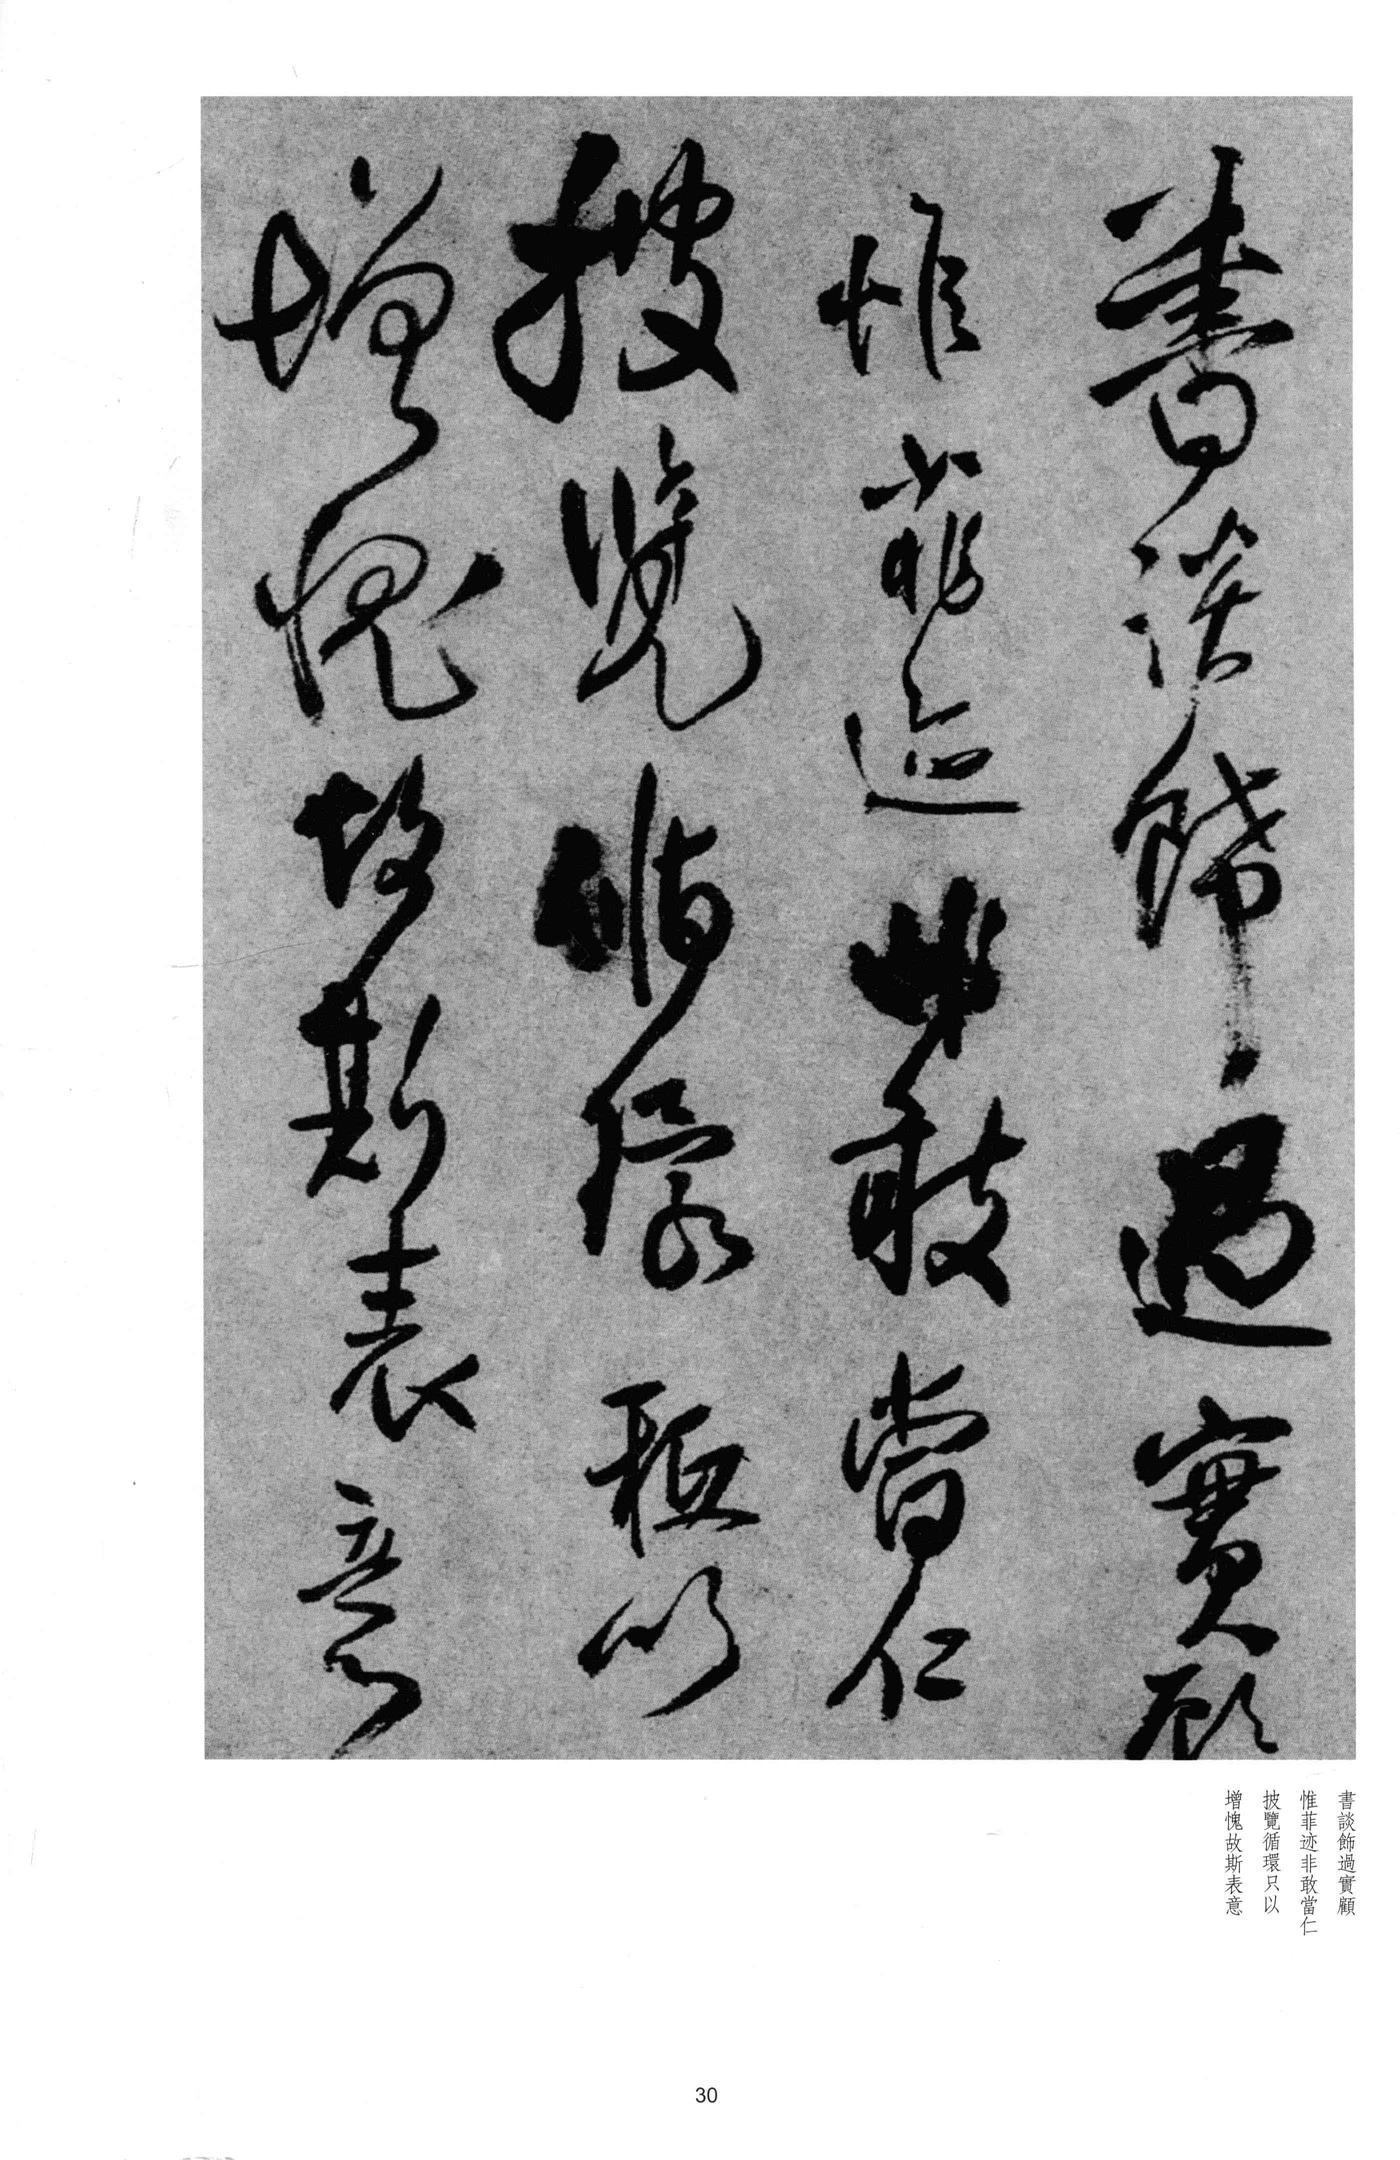 書談飾過實顧
惟菲迹非敢當仁
披覽循環祗以
增愧故斯表意
書談飾過實顧
惟菲迹非敢當仁
披覽循環只以
增愧故斯表意
30